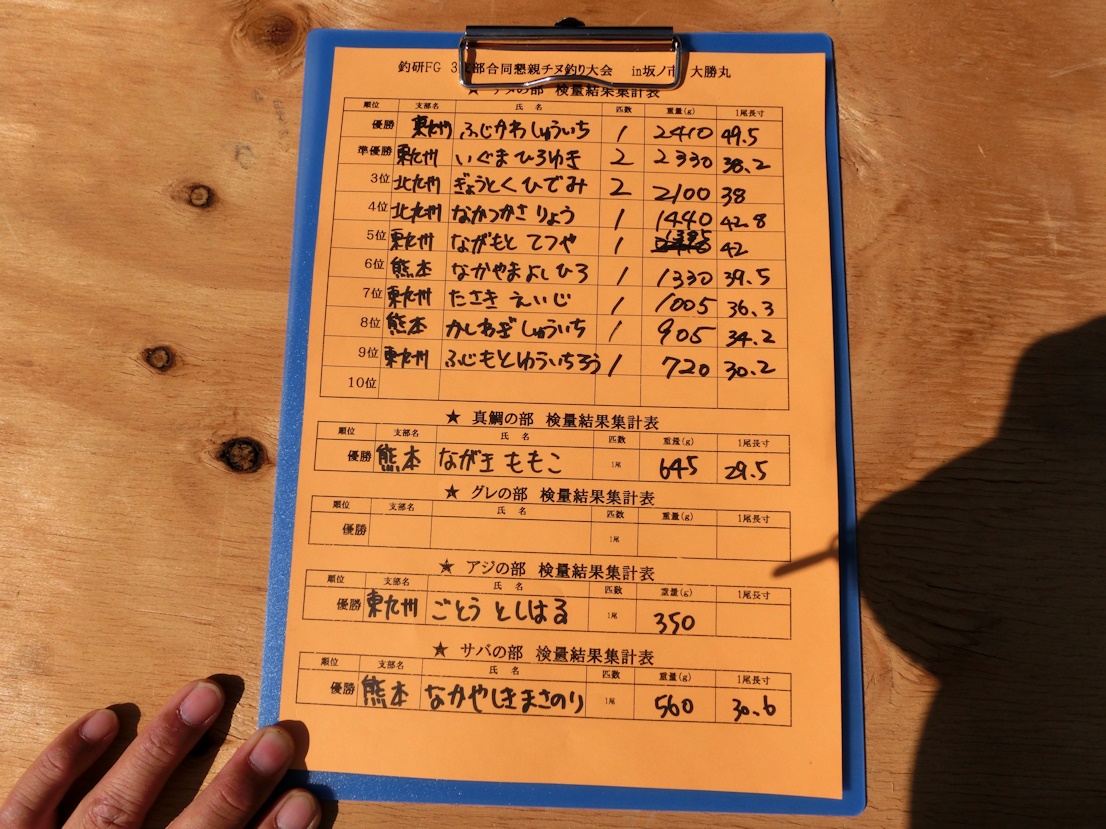 釣研FG 3支部合同懇親チヌ釣り大会 in坂ノ市 大勝丸
★ チヌの部 検量結果集計表
順位 支部名 氏 名 匹数 重量(g) 1尾長寸
優勝 東九州 ふじかわしゅういち 1 2410 49.5
準優勝 東九州 いぐまひろゆき 2 2330 38.2
3位 北九州 ぎょうとくひでみ 2 2100 38
4位 北九州 なかつかさりょう 1 1440 42.8
5位 東九州 ながもと てつや 1 1395 42
6位 熊本 なかやまよしひろ 1 1330 39.5
7位 東九州 たさき えいじ 1 1005 36.3
8位 熊本 かしわぎ しゅういち 1 905 34.2
9位 東九州 ふじもとゆういちろう 1 720 30.2
10位
★ 真鯛の部 検量結果集計表
順位 支部名 氏 名 匹数 重量(g) 1尾長寸
優勝 熊本 ながま ももこ 1尾 645 29.5
★ グレの部 検量結果集計表
順位 支部名 氏 名 匹数 重量(g) 1尾長寸
優勝 1尾
★ アジの部 検量結果集計表
順位 支部名 氏 名 匹数 重量(g) 1尾長寸
優勝 東九州 ごとう としはる 1尾 350
★ サバの部 検量結果集計表
順位 支部名 氏 名 匹数 重量(g) 1尾長寸
優勝 熊本 なかやしきまさのり 1尾 560 30.6